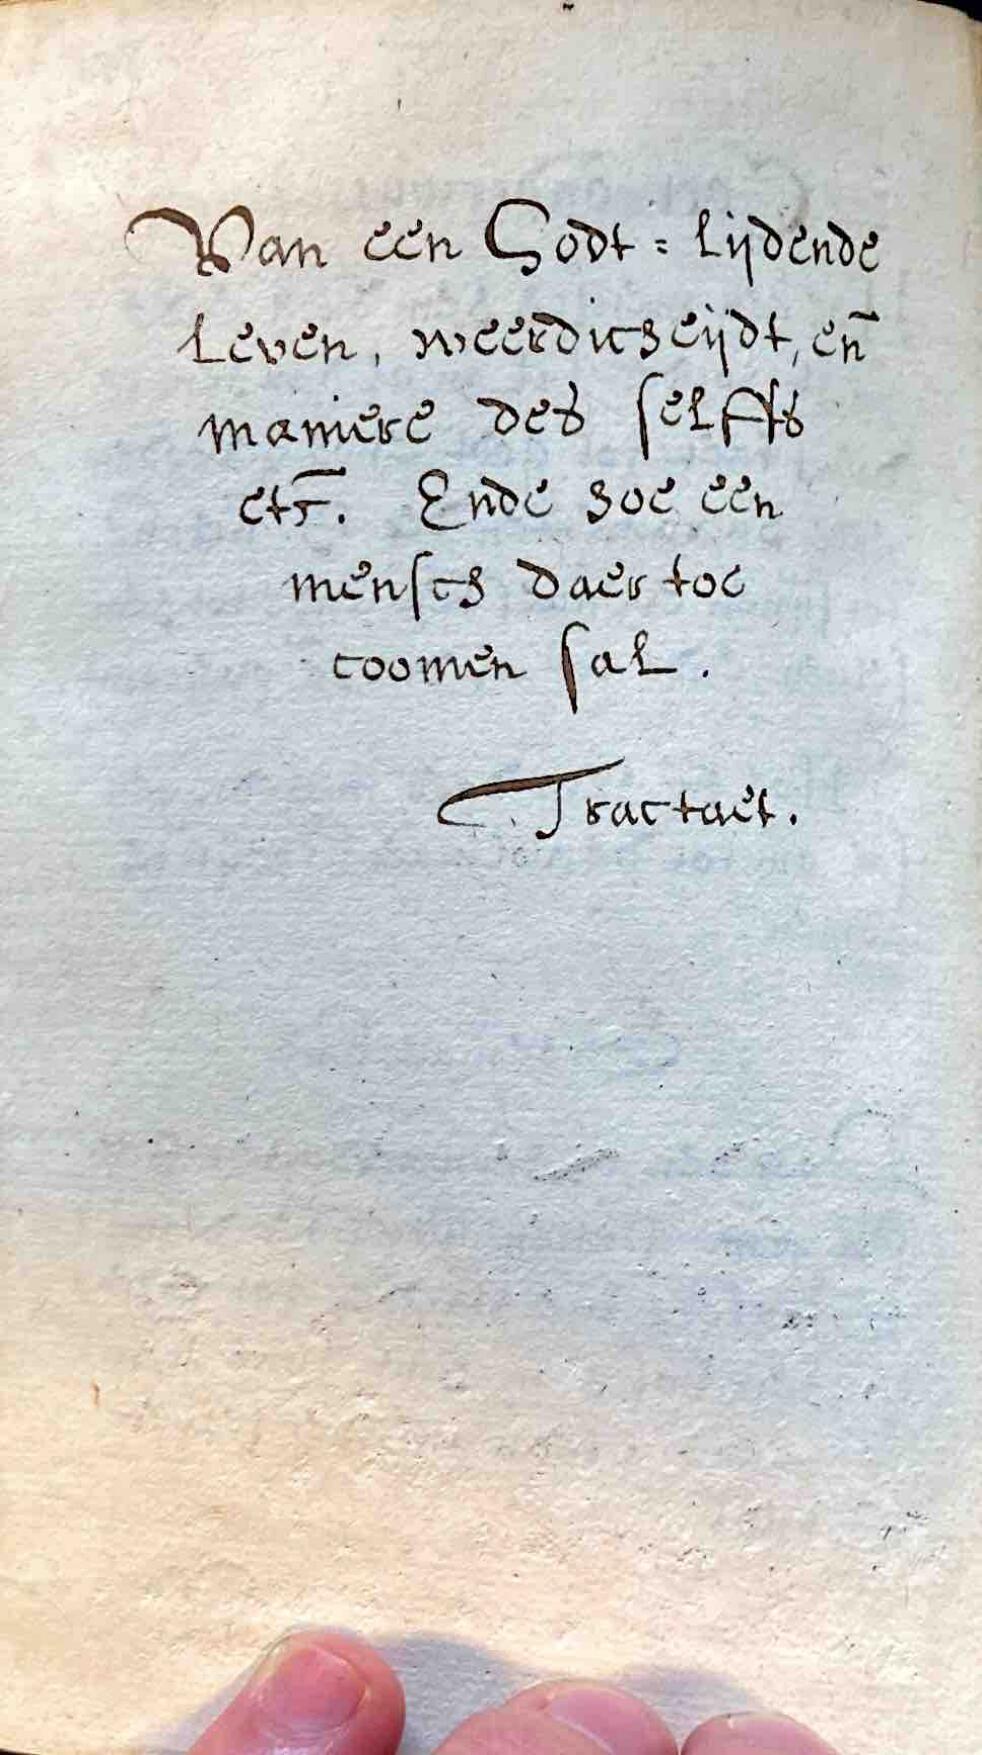 Van een Godt = lijdende
Leven, weerdicheijdt, en̄
maniere des selffs
etc̄. Ende hoe een
mensch daer toe
coomen sal.
Tractaet.